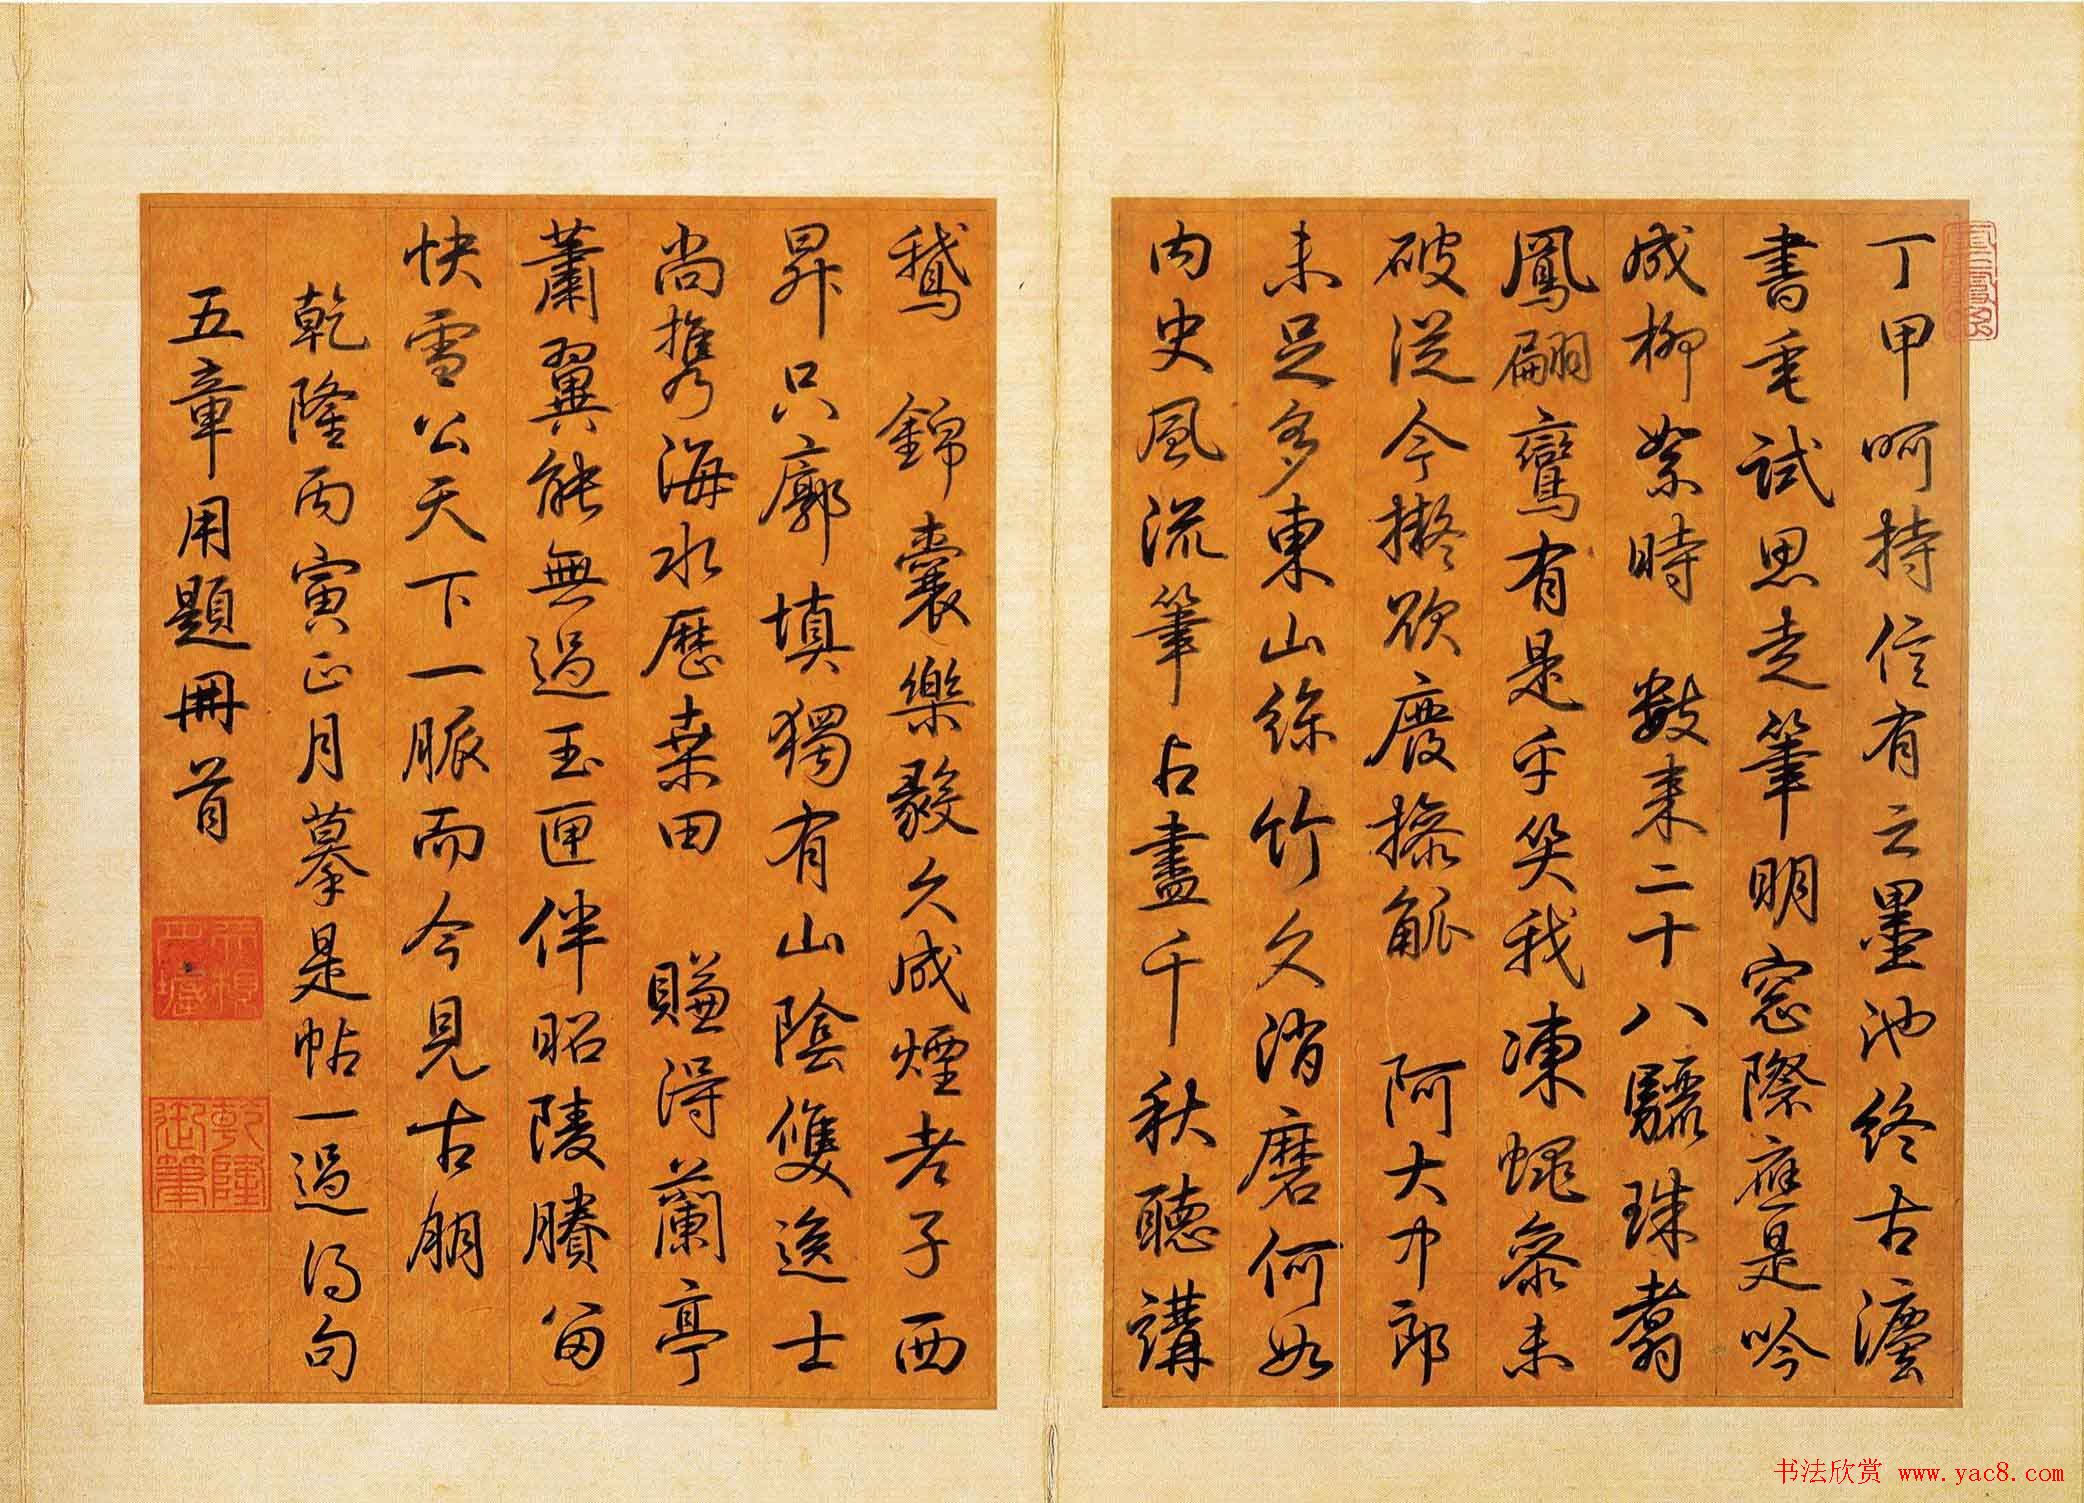 丁甲呵持信有之墨池終古瀅
書重試思走筆明窓際應是吟
成柳絮時 數來二十八驪珠翥
鳳翩鸞有是乎笑我凍蠅參未
破從今擬欲廢操觚 阿大中郎
未足多東山絲竹久消磨何如
内史風流筆占盡千秋聽講
鵝 錦囊樂毅久成煙老子西
昇只廓填獨有山陰雙逸士
尚攜海水歷桒田 賺得蘭亭
蕭翼能無過玉匣伴昭陵賸留
快雪公天下一脈而今見古朋
乾隆丙寅正月摹是帖一過得句
五章用題冊首
乾隆
御筆
书法欣赏 www.yac8.com